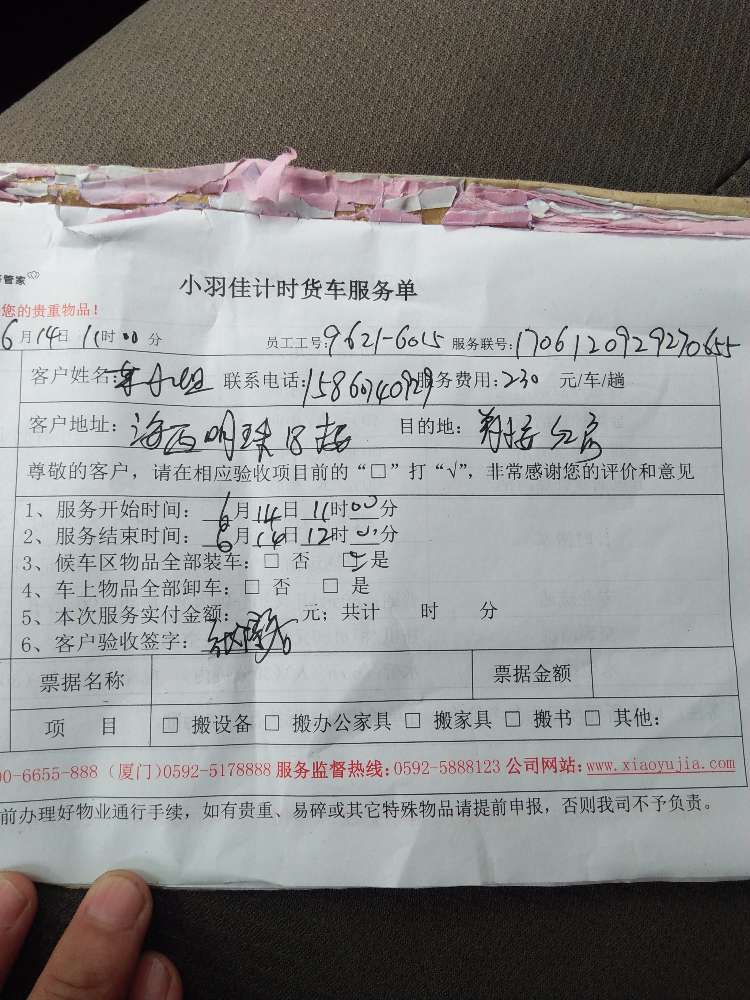 管家
小羽佳计时货车服务单
您的贵重物品！
6月14日 11时00分 员工工号：9621-6015 服务联号：1706120929270655
客户姓名： 小姐 联系电话：15860740929 服务费用：230 元/车/趟
客户地址：海西明珠18楼 目的地：翔安
尊敬的客户，请在相应验收项目前的“□”打“√”，非常感谢您的评价和意见
1、服务开始时间：6月14日11时00分
2、服务结束时间：6月14日12时00分
3、候车区物品全部装车：□ 否 □ 是
4、车上物品全部卸车：□ 否 □ 是
5、本次服务实付金额： 元；共计 时 分
6、客户验收签字：
票据名称 票据金额
项 目 □ 搬设备 □ 搬办公家具 □ 搬家具 □ 搬书 □ 其他：
00-6655-888（厦门）0592-5178888 服务监督热线：0592-5888123 公司网站：www.xiaoyujia.com
前办理好物业通行手续，如有贵重、易碎或其它特殊物品请提前申报，否则我司不予负责。